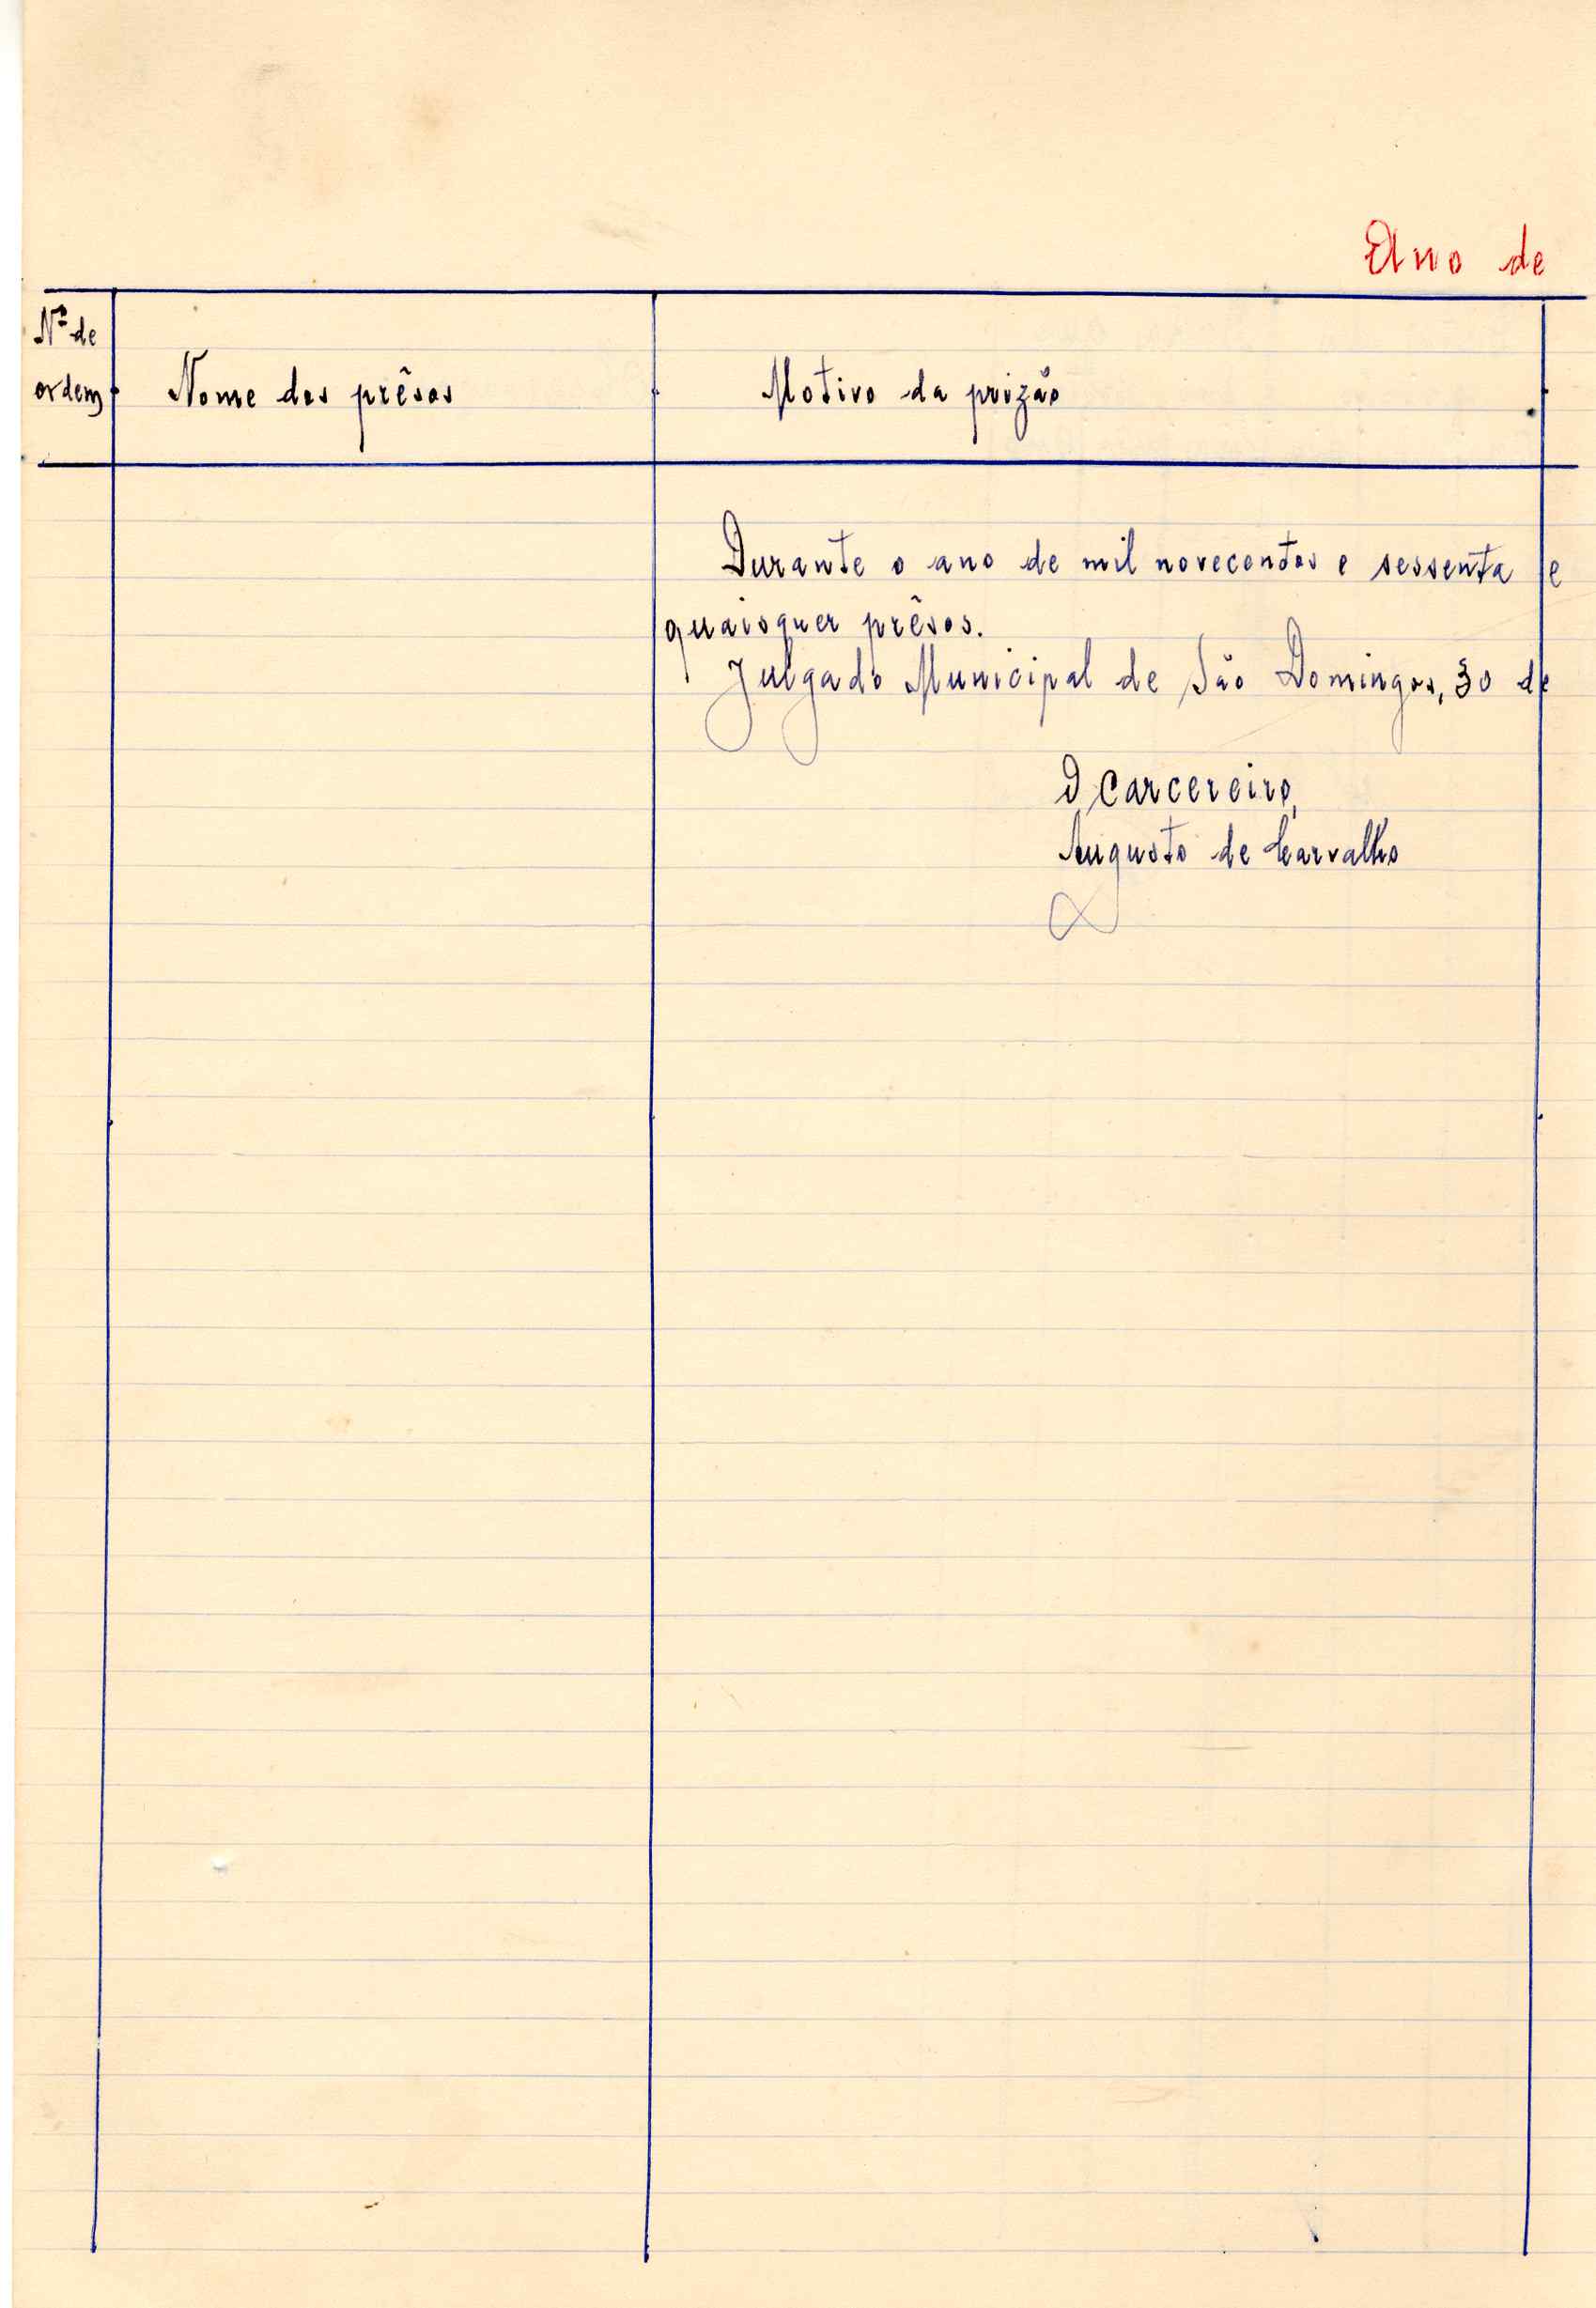 Ano de
Nº de
ordem
Nome dos prêsos
Motivo da prizão
Durante o ano de mil novecentos e sessenta e
quaisquer prêsos.
Julgado Municipal de São Domingos, 30 de
O Carcereiro,
Augusto de Carvalho